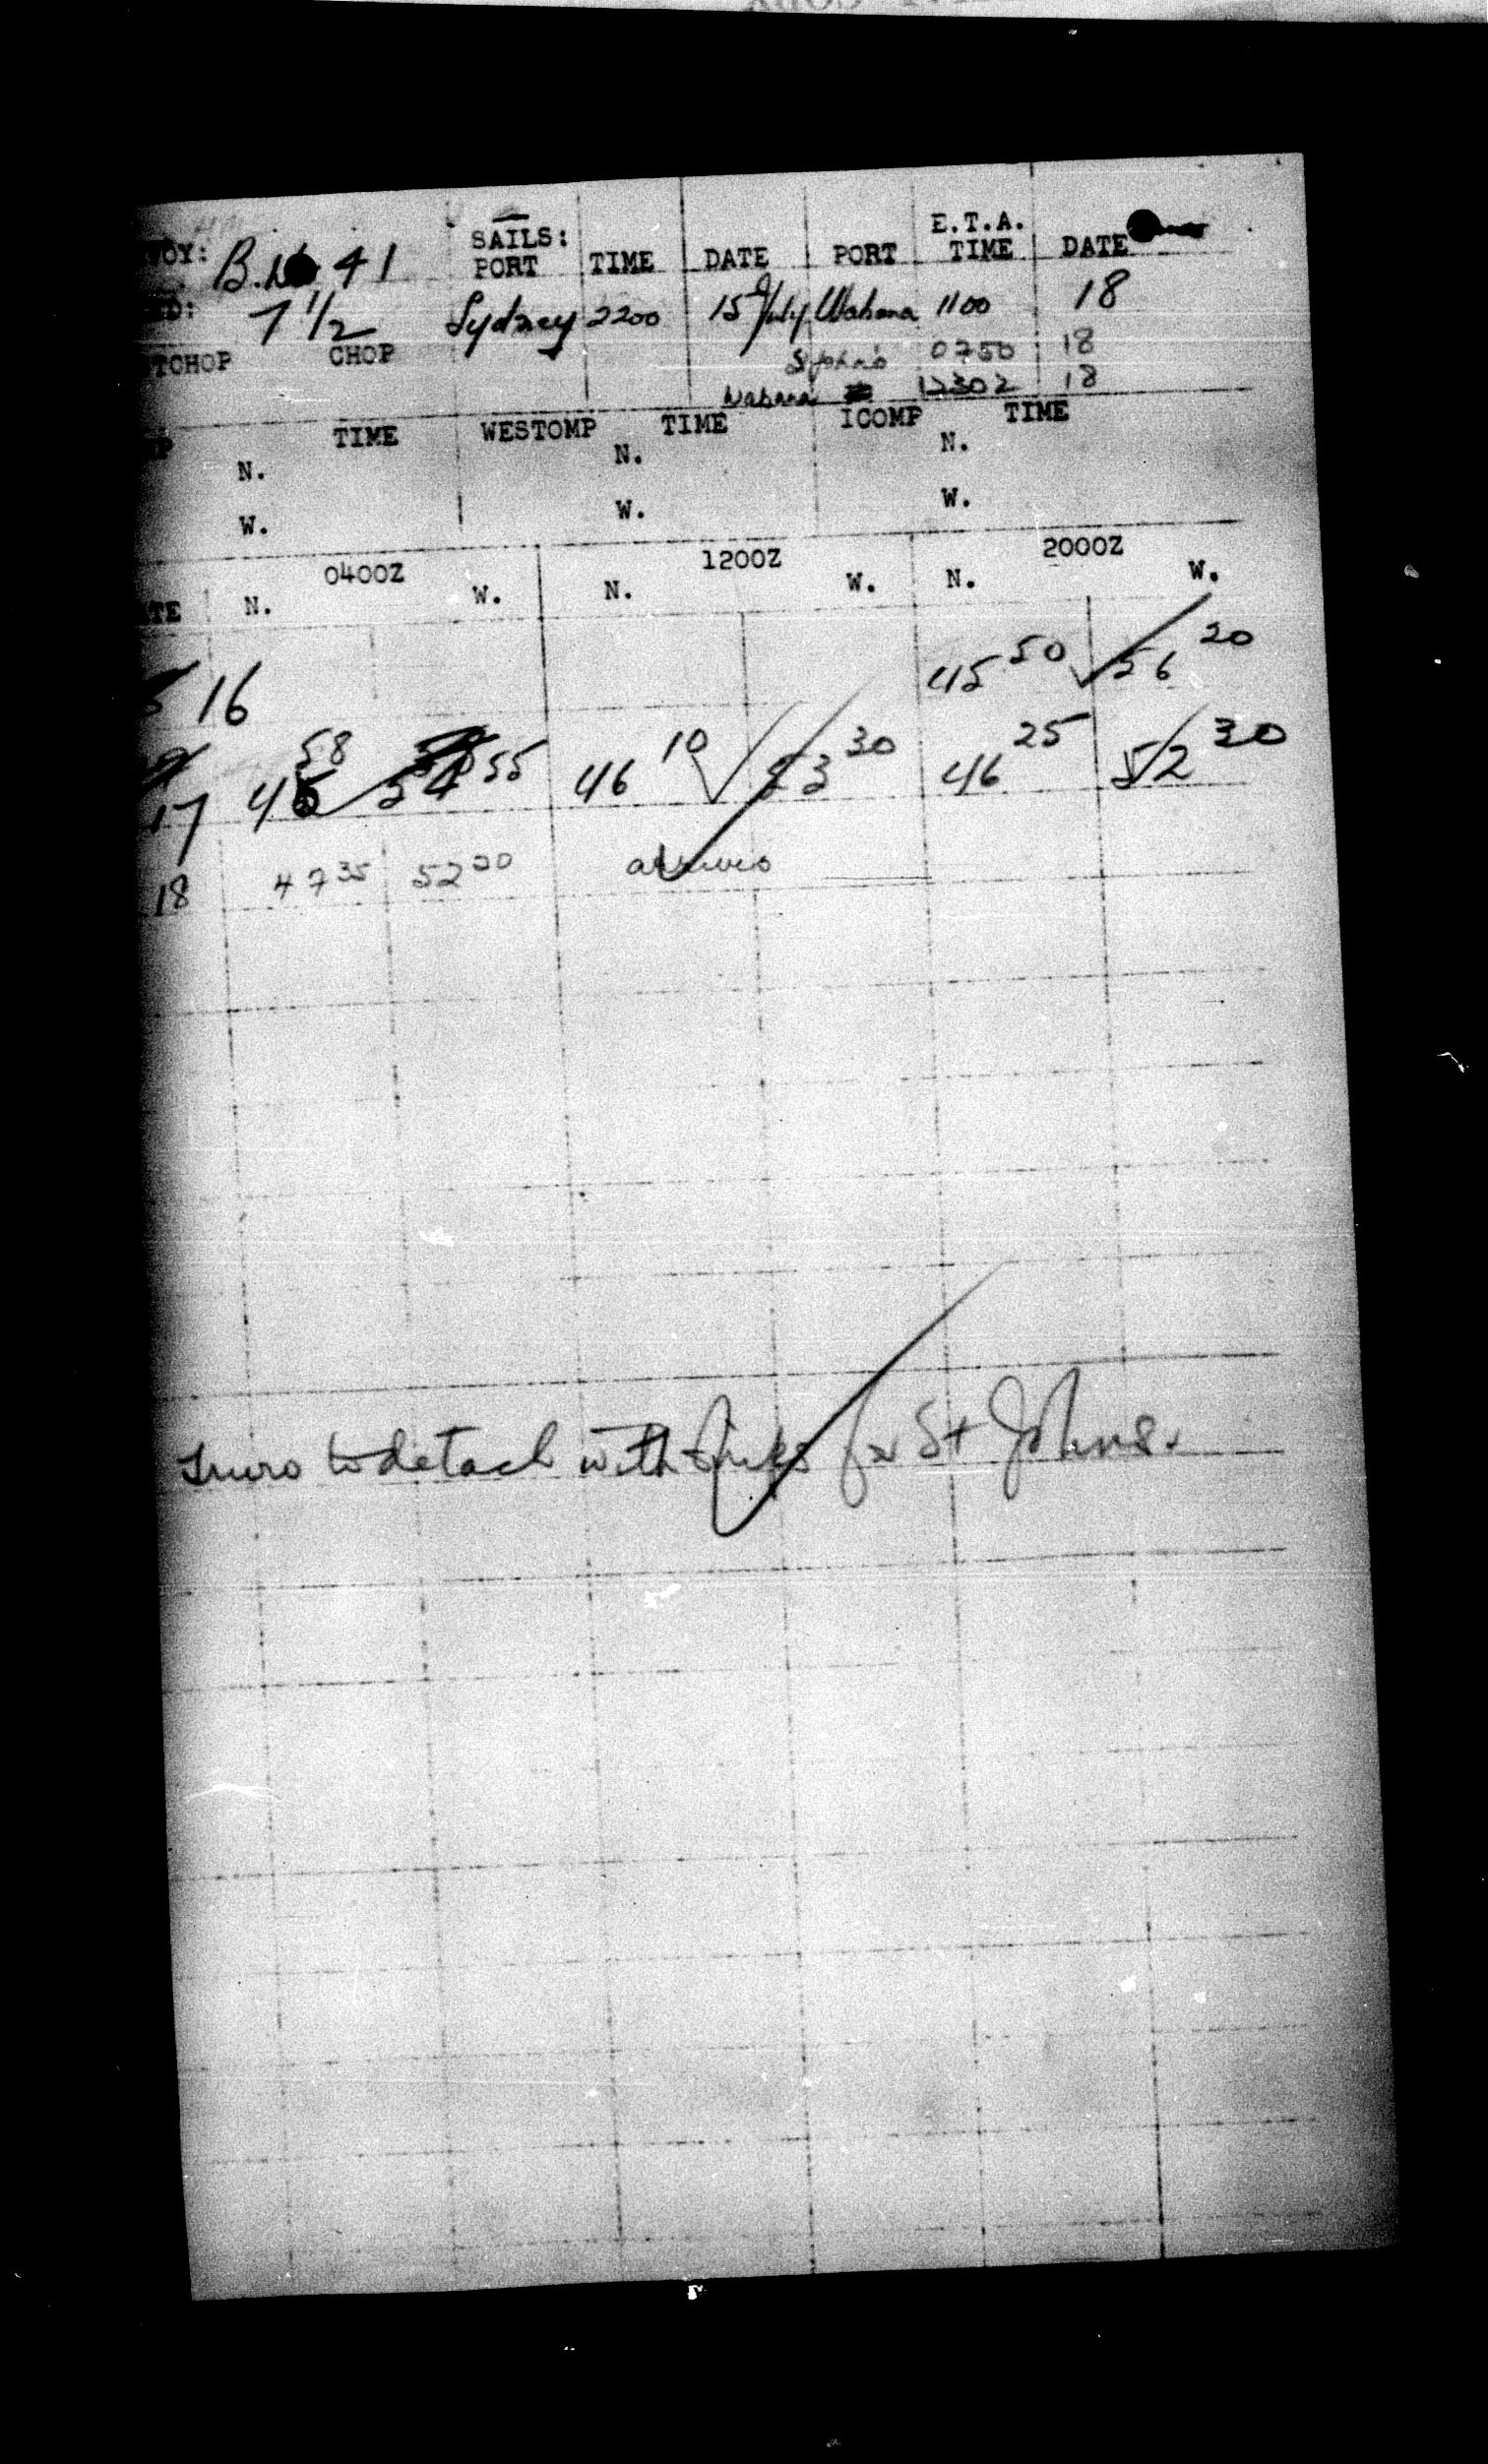 VOY: B. 41 SAILS: PORT TIME DATE PORT E.T.A. TIME DATE
ED: 7 1/2 Sydney 2200 15 July Wabana 1100 18
TCHOP CHOP St John's 0750 18
Wabana 1230Z 18
P TIME WESTOMP TIME ICOMP TIME
N. N. N.
W. W. W.
0400Z 1200Z 2000Z
TE N. W. N. W. N. W.
16 45 50 56 20
17 45 58 54 55 46 10 53 30 46 25 52 30
18 47 35 52 20 arrives
Truro to detach with ships for St Johns.